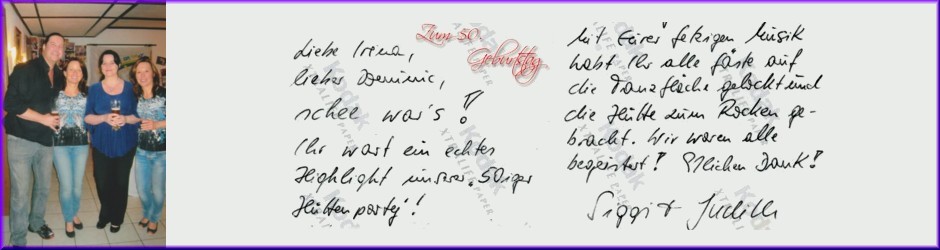 Zum 50.
Geburtstag
Liebe Irena,
lieber Dominic,
schee war's!
Ihr wart ein echtes
Highlight unserer "50iger
Hüttenparty"!
Mit Eurer fetzigen Musik
habt Ihr alle Gäste auf
die Tanzfläche gelockt und
die Hütte zum Rocken ge-
bracht. Wir waren alle
begeistert! Herzlichen Dank!
Siggi + Judith